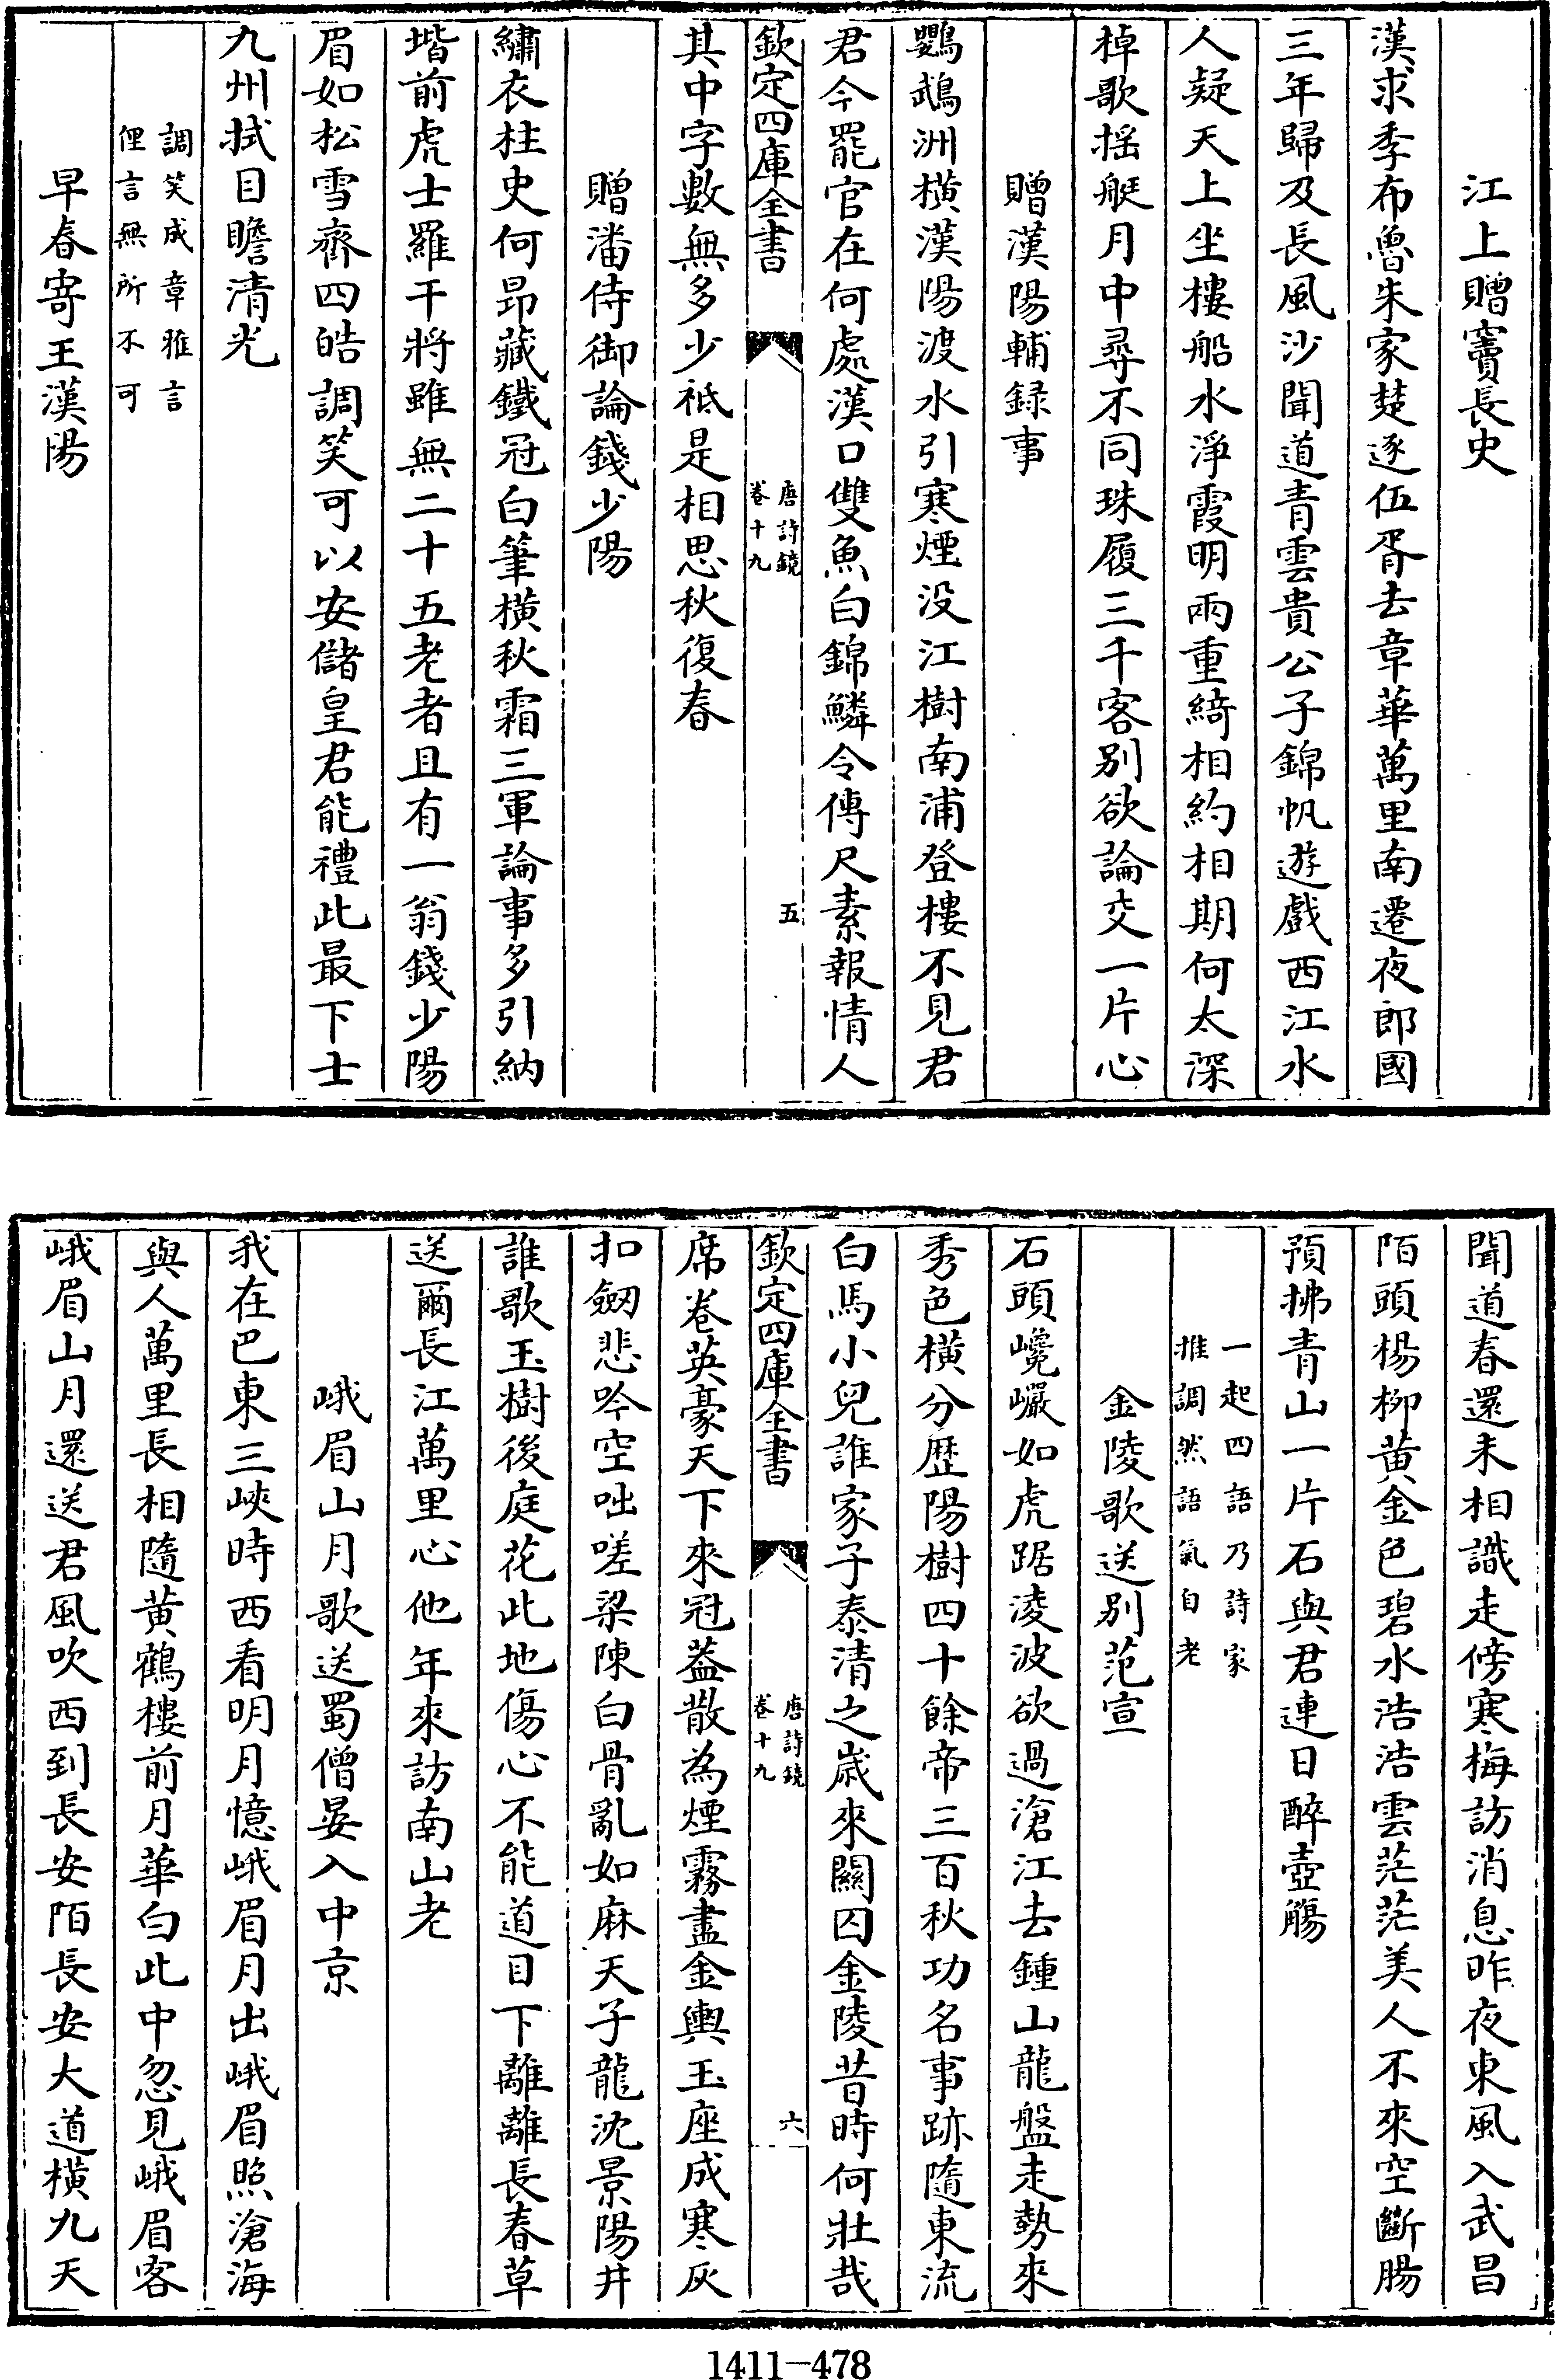 江上贈竇長史
漢求季布魯朱家楚逐伍胥去章華萬里南遷夜郎國
三年歸及長風沙聞道青雲貴公子錦帆遊戲西江水
人疑天上坐樓船水淨霞明兩重綺相約相期何太深
棹歌搖艇月中尋不同珠履三千客别欲論交一片心
贈漢陽輔録事
鸚鵡洲橫漢陽渡水引寒煙没江樹南浦登樓不見君
君今罷官在何處漢口雙魚白錦鱗令傳尺素報情人
欽定四庫全書
唐詩鏡
卷十九
五
其中字數無多少祗是相思秋復春
贈潘侍御論錢少陽
繡衣柱史何昂藏鐵冠白筆橫秋霜三軍論事多引納
堦前虎士羅干將雖無二十五老者且有一翁錢少陽
眉如松雪齊四皓調笑可以安儲皇君能禮此最下士
九州拭目瞻清光
調笑成章雅言
俚言無所不可
早春寄王漢陽
聞道春還未相識走傍寒梅訪消息昨夜東風入武昌
陌頭楊柳黄金色碧水浩浩雲茫茫美人不來空斷腸
預拂青山一片石與君連日醉壺觴
一起四語乃詩家
推調然語氣自老
金陵歌送别范宣
石頭巉巖如虎踞凌波欲過滄江去鍾山龍盤走勢來
秀色橫分歷陽樹四十餘帝三百秋功名事跡隨東流
白馬小兒誰家子泰清之歲來關囚金陵昔時何壯哉
欽定四庫全書
唐詩鏡
卷十九
六
席卷英豪天下來冠葢散為煙霧盡金輿玉座成寒灰
扣劒悲吟空咄嗟梁陳白骨亂如麻天子龍沈景陽井
誰歌玉樹後庭花此地傷心不能道目下離離長春草
送爾長江萬里心他年來訪南山老
峨眉山月歌送蜀僧晏入中京
我在巴東三峽時西看明月憶峨眉月出峨眉照滄海
與人萬里長相隨黄鶴樓前月華白此中忽見峨眉客
峨眉山月還送君風吹西到長安陌長安大道橫九天
1411—478